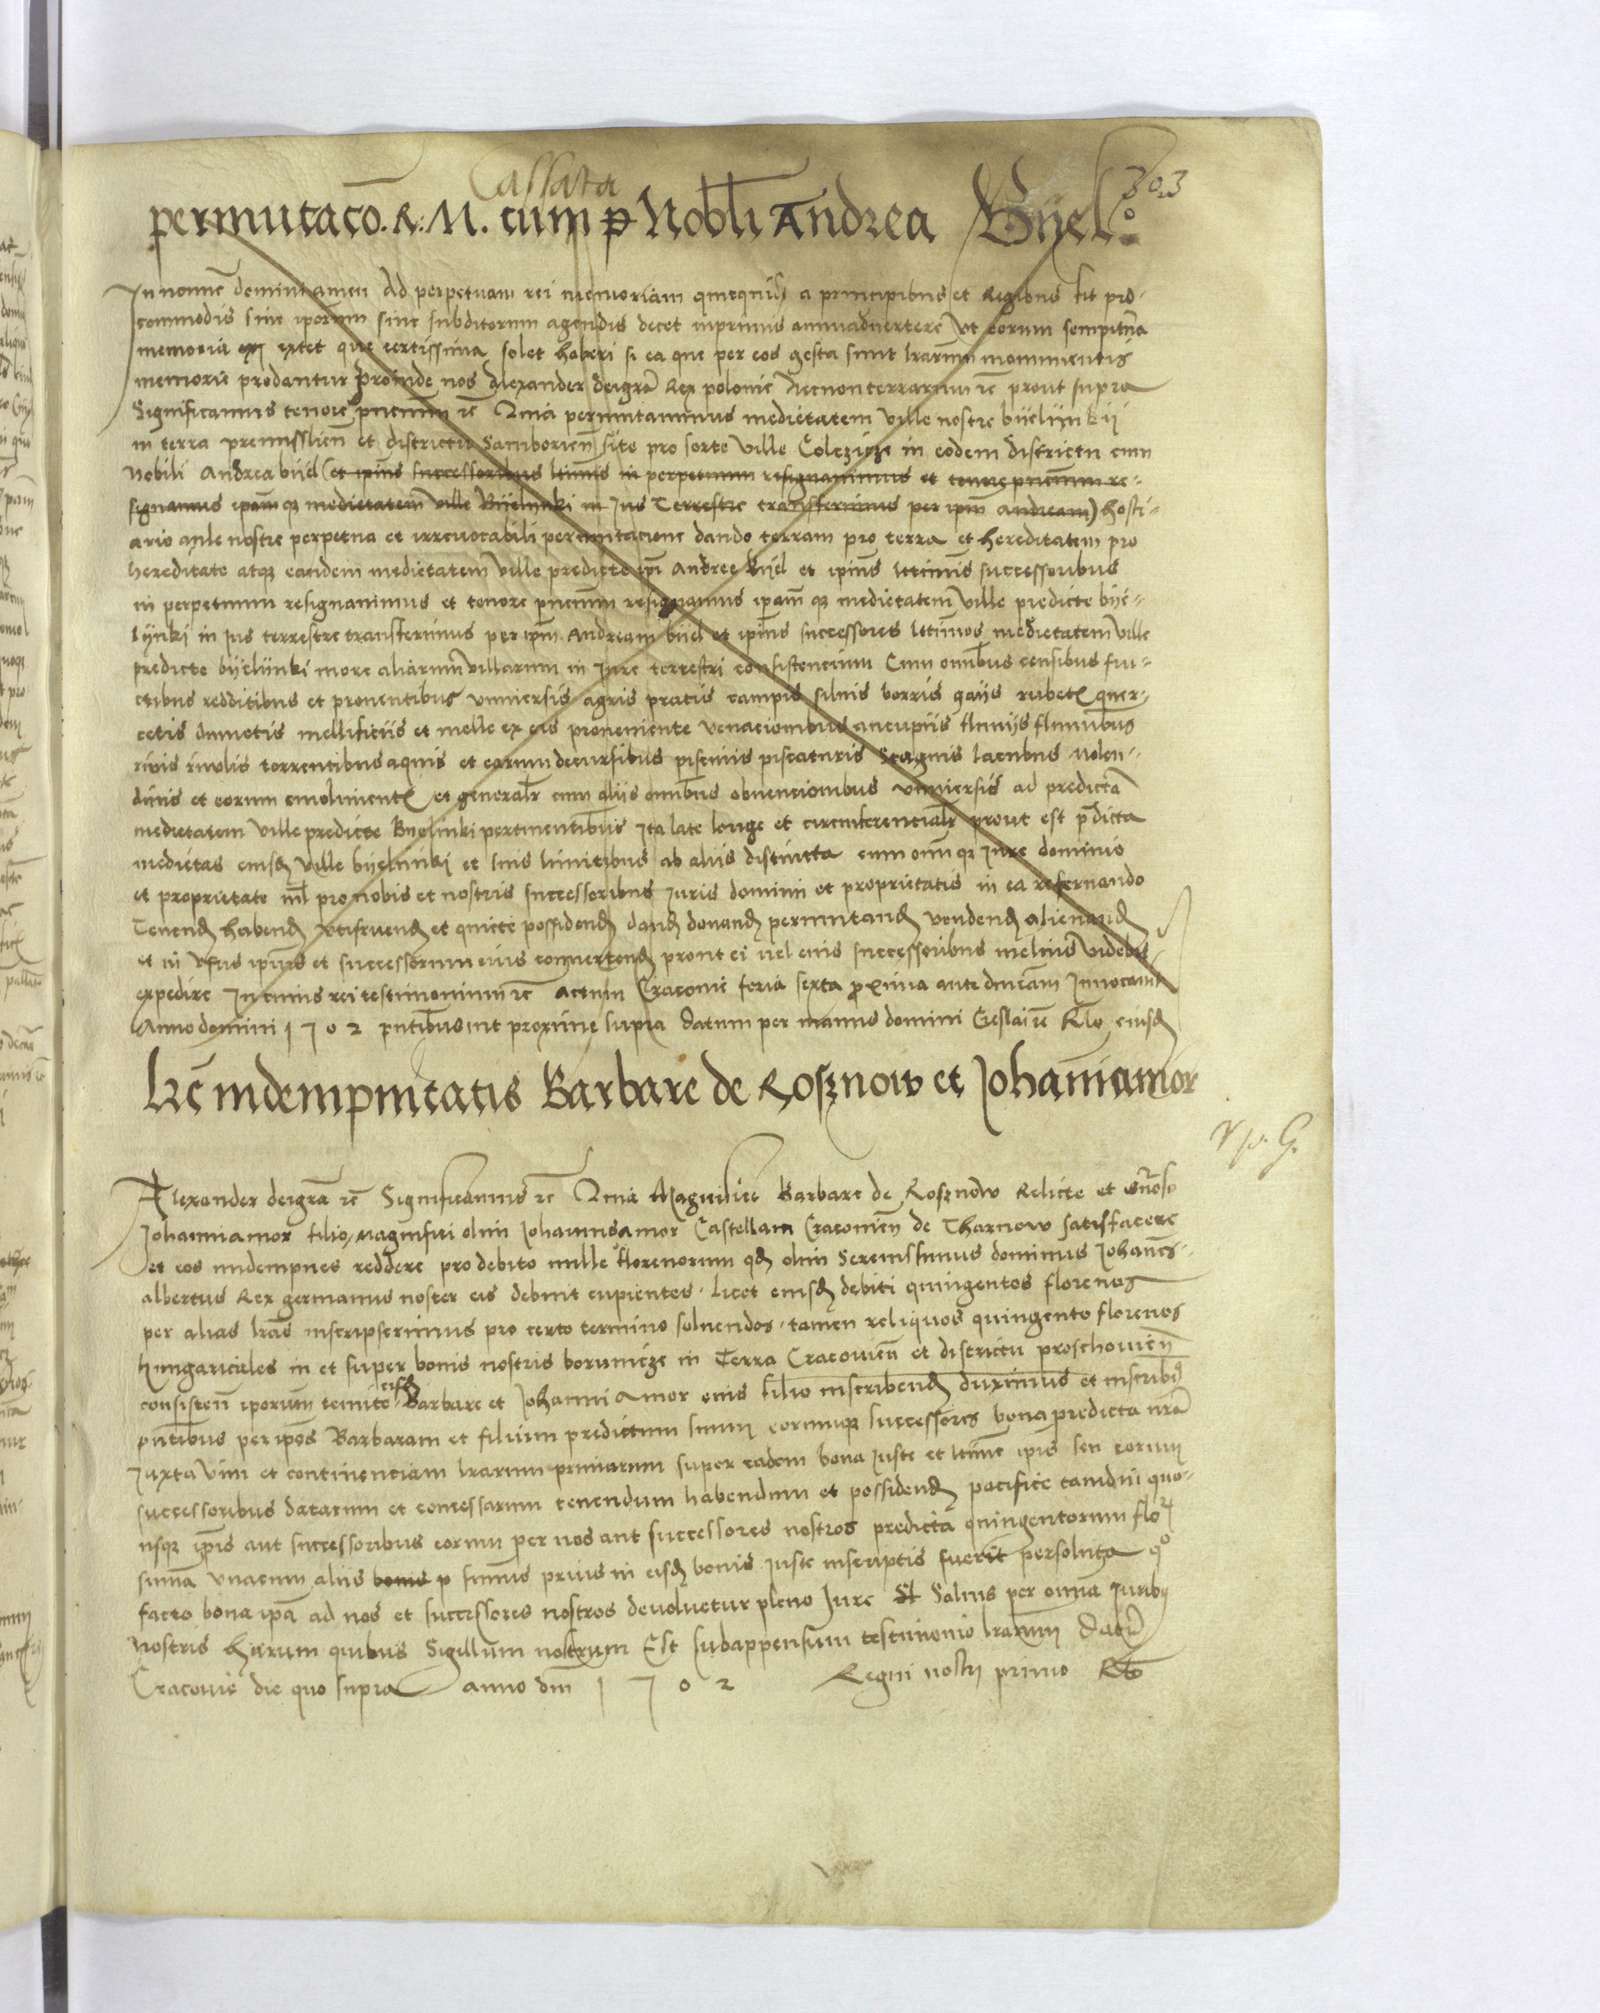 303
Cassata
permutacō. R. M. cum Nobli Andrea Byel.
In nomīe domini amen Ad perpetuam rei memoriam quicquid a principibus et Regibus fit pro
commodis siue ipsorum siue subditorum agendis decet inprimis animaduertere vt eorum sempitna
memoria extet que certissima solet haberi si ea que per eos gesta sunt lrarum monumentis
memorie prodantur Proinde nos Alexander deigrā Rex polonie Necnon terrarum rē prout supra
Significamus tenore pncium rē Quia permutauimus medietatem ville nostre byelynkij
in terra premisslien̄ et districtu Samborien̄ site pro sorte ville Colczicze in eodem districtu cum
Nobili Andrea biel (et ipius successoribus ltimis in perpetuum resignauimus et tenore pncium re-
signamus ipam qz medietatem ville Byelynki in Jus Terrestre transferimus per ipm̄ andream) hosti-
ario aule nostre perpetua et irreuocabili permutacione dando terram pro terra et hereditatem pro
hereditate atqz eandem medietatem ville predicte ipi Andree Byel et ipius ltimis successoribus
in perpetuum resignauimus et tenore pncium resignamus ipam qz medietatem ville predicte bye-
lynki in ius terrestre transferimus per ipm Andream biel et ipius successores ltimos medietatem ville
predicte byelynki more aliarum villarum in Jure terrestri consistencium Cum omībus censibus fru-
ctibus redditibus et prouentibus vniuersis agris pratis campis siluis borris gaijs rubetis quer-
cetis dumetis mellificiis et melle ex eis proueniente venacionibus aucupiis fluuijs fluminibus
riuis riuolis torrentibus aquis et earum decursibus piscinis piscaturis Stagnis lacubus molen-
dinis et eorum emolimentis et generalr cum aliis omībus obuencionibus vniuersis ad predictā
medietatem ville predicte Byelinki pertinentibus Ita late longe et circumferencialr prout est pdicta
medietas eiusd ville byelnuki et suis limitibus ab aliis distincta cum omī qz Jure dominio
et proprietate nīl pro nobis et nostris successoribus Juris dominii et proprietatis in ea reseruando
Tenend habend vtifruend et quiete possidend dand donand permutand vendend alienand
et in vsus ipius et successorum eius conuertend prout ei vel eius successoribus melius videbit
expedire In cuius rei testimonium rē actum Cracouie feria sexta proxima ante dnicam Inuocauit
Anno domini 1 5 0 2 pntibus ut proxime supra datum per manus domini Ceslai rē Rto eiusd
Lrē indempnitatis Barbare de Roznow et Johanniamor
Alexander deigrā rē Significamus rē Quia Magnifice Barbare de Roznow Relicte et Gnoso
Johanniamor filio, magnifici olim Johannisamor Castellani Cracouien̄ de Tharnow satisfacere
et eos indempnes reddere pro debito mille florenorum qd olim Serenissimus dominus Johanēs-
albertus Rex germanus noster eis debuit cupientes. licet eiusd debiti quingentos florenos
per alias lras inscripserimus pro certo termino soluendos. tamen reliquos quingento florenos
hungaricales in et super bonis nostris borumicze in Terra Cracouien̄ et districtu proschouien̄
consisten̄ iporum tenute eisd Barbare et Johanni amor eius filio inscribend duximus et inscribis
pntibus per ipos Barbaram et filium predictum suum eorumqz successores bona predicta nrā
Juxta vim et continenciam lrarum primarum super eadem bona Juste et ltime ipis seu eorum
successoribus datarum et concessarum tenendum habendum et possidend pacifice tamdiu quo-
usqz ipis aut successoribus eorum per nos aut successores nostros predicta quingentorum flor
summa vnacum aliis bonis p summis prius in eisd bonis Juste inscriptis fuerit persoluta qo
facto bona ipa ad nos et successores nostros deuoluetur pleno Jure Saluis per omīa Juribus
nostris harum quibus Sigillum nostrum Est subappensum testimonio lrarum Datū
Cracouie die quo supra anno dni 1 5 0 2 Regni nostri primo Rto